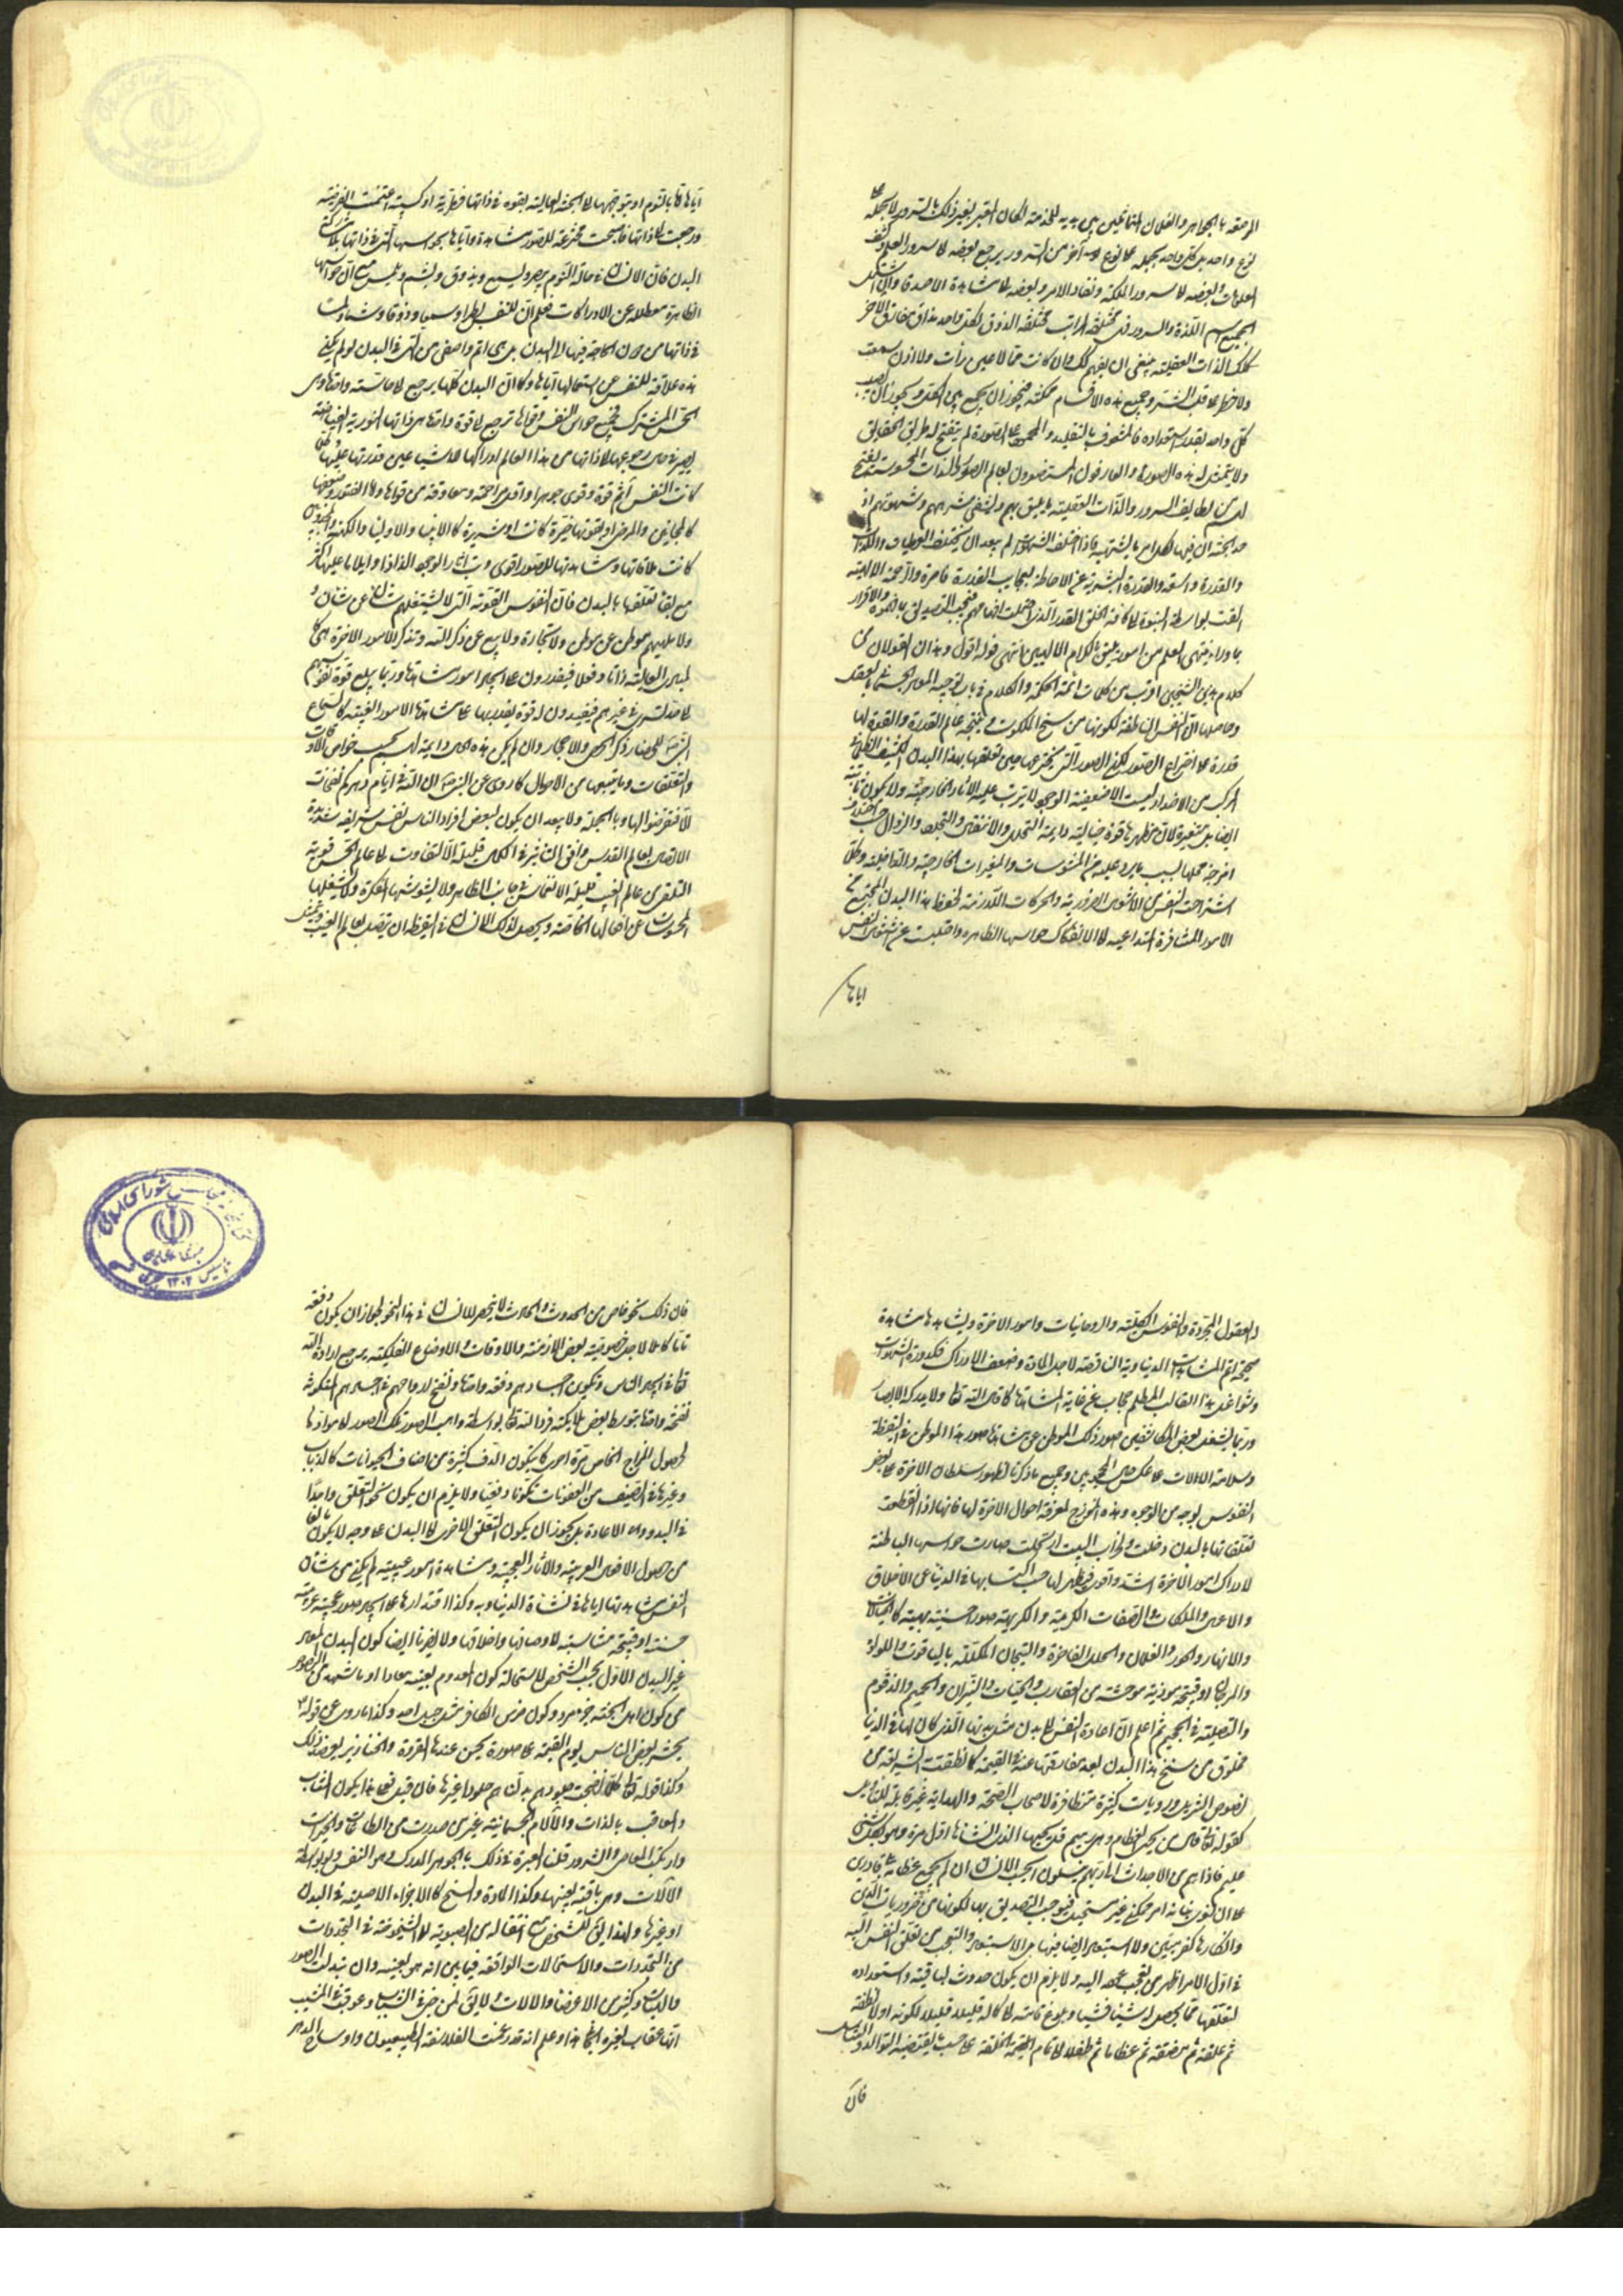 المرصعة بالجواهر والغلمان الماثلين بين يديه للخدمة لكان المعبر يعبر ذلك بالسرور لا يحمله على
نوع واحد بل كل واحد يحمله على نوع آخر من السرور يرجع بعضه الى سرور العلم وكشف
المعلومات وبعضه الى سرور المملكة ونفاذ الامر وبعضه الى مشاهدة الاصدقاء وان اشتمل
الجميع اسم اللذة والسرور فهي مختلفة المراتب مختلفة الذوق لكل واحد مذاق يفارق الآخر
فكذلك اللذات العقلية ينبغي ان يفهم كذلك وان كانت مما لا عين رأت ولا اذن سمعت
ولا خطر على قلب بشر وجميع هذه الاقسام ممكنة فيجوز ان يجمع بين الكل ويجوز ان يصيب
كل واحد بقدر استعداده فالمشغوف بالتقليد والمجمود على الصورة لم ينفتح له طريق الحقايق
ولا يتمثل له هذه الصورة والعارفون المستصغرون لعالم الصور واللذات المحسوسة يفتح
لهم من لطايف السرور واللذات العقلية ما يليق بهم ويشفي شرههم وشهوتهم اذ
حد الجنة ان فيها لكل امرئ ما يشتهيه فاذا اختلف الشهوات لم يبعد ان يختلف العطيات واللذات
والقدرة واسعة والقدرة البشرية عن الاحاطة بعجايب القدرة قاصرة والرحمة الالهية
القت بواسطة النبوة الى كافة الخلق القدر الذي احتملت افهامهم فيجب التصديق بما فهموه والاقرار
بما وراء منتهى العلم من امور يليق بالكرم الالهي انتهى قوله اقول وهذان القولان من
كلام هذين الشيخين اقرب من كلمات ائمة الحكمة والكلام في باب توجيه المعاد الجسماني بالعقل
وحاصلها ان النفس الناطقة لكونها من سنخ الملكوت ونتيجة عالم القدرة والقوة لها
قدرة على اختراع الصور لكن الصور التي يخترعها حين تعلقها بهذا البدن الكثيف الظلماني
المركب من الاضداد ليست الا ضعيفة الوجود لا يترتب عليها الآثار الخارجية ولا يكون ثابتة
ايضا بل متغيرة لان مظهرها قوة خيالية دايمة التحلل والانتقاص والتجدد والزوال حسب اختلاف
امزجة محلها لسبب ما يرد عليه من المشوشات والمغيرات الخارجية والداخلية وكلما
استراحت النفس من الاشغال الضرورية والحركات اللازمة لحفظ هذا البدن المجتمع من
الامور المتنافرة المتداعية الى الانفكاك حواسها الظاهرة واحتبست عن شغل النفس
اياها
اياها اما بالنوم او بتوجهها الى الجنبة العالية بقوة في ذاتها فطرية او كسبية اغتنمت الفرصة
ورجعت الى ذاتها فاصبحت مخترعة للصور مشاهدة اياها بحواسها التي في ذاتها بلا مشاركة
البدن فان الانسان في حالة النوم يبصر ويسمع ويذوق ويشم ويلمس مع ان حواسها
الظاهرة معطلة عن الادراكات فعلم ان للنفس بصرا وسمعا وذوقا وشما ولمسا
في ذاتها من دون الحاجة فيها الى البدن بل هي اتم واصفى من التي في البدن لو لم يكن
هذه علاقة للنفس عن استعمالها اياها وكما ان البدن كلها يرجع الى حاسة واحدة وهي
الحس المشترك فجميع حواس النفس وقواها ترجع الى قوة واحدة هي ذاتها النورية الفياضة
فيصير في حال رجوعها الى ذاتها من هذا العالم ادراكها للاشياء عين قدرتها عليها وكلما
كانت النفس اتم قوة وقوى جوهرا واقل مزاحمة ومعاوقة من قواها ولو لفتور وضعفها
كالمجانين والمرضى او لقوتها خيرة كانت او شريرة كالانبياء والاولياء والكهنة والمجذوبين
كانت علاقاتها ومشاهدتها للصور اقوى وتاثير الوجود الذاذا وايلاما عليها اكثر
مع بقاء تعلقها بالبدن فان النفوس القوية التي لا يشغلهم شان عن شان
ولا يلهيهم موطن عن موطن ولا تجارة ولا بيع عن ذكر الله وتذكر الامور الآخرة هي كالمبادي
العالية ذاتا وفعلا فيقدرون على ايجاد امور شاهدها وربما يبلغ قوة نفوسهم
الى حد تسري في غيرهم فيفيدون له قوة يقدر بها على مشاهدة الامور الغيبية كاسماع
النبي للحضار ذكر الحصى والاحجار وان لم يكن هذه الحال دايمة لهم بحسب خواص الاوقات
والتعلقات وما يتبعها من الاحوال كما روي عن النبي ان لله في ايام دهركم نفحات
الا فتعرضوا لها وبالجملة ولا يبعد ان يكون لبعض افراد الناس نفس شريفة شديدة
الاتصال بعالم القدس وافق التاثير في الكل قليلة الالتفات الى عالم الحس قوية
التلقي من عالم الغيب قليلة الانغماس في جانب الظاهر ولا يشوشها الفكرة ولا يشغلها
المحسوسات عن افعالها الخاصة ويحصل لذلك الانسان في اليقظة ان يتصل بعالم الغيب وتمثل
والعقول المجردة والنفوس الكلية والروحانيات وامور الآخرة ويشاهدها مشاهدة
صحيحة اتم المشاهدات الدنياوية الناقصة لاجل المادة وضعف الادراك فكدورة الشهوات
وشواغل هذا القالب المظلم حجاب عن غاية المشاهدة كما قال الله تعالى ولا يدركه الابصار
وربما يشغل بعض المكاشفين صور ذلك الموطن عن مشاهدة صور هذا الموطن في اليقظة
وسلامة الآلات على عكس حال المحجوبين وجميع ما ذكرنا لظهور سلطان الآخرة على بعض
النفوس بوجه من الوجوه وهذه انموذج لمعرفة احوال الآخرة لها فانها اذا انقطعت
تعلقاتها بالبدن دخلت وخراب البيت ارتحلت صارت حواسها الباطنة
لادراك امور الآخرة اشد واقوى فيظهر لها حسب اكتسابها في الدنيا من الاخلاق
والاعمال والملكات والصفات الكريمة والكريهة صور حسنة بهية كالجنان
والانهار والحور والغلمان والحلل الفاخرة والتيجان المكللة بالياقوت واللؤلؤ
والمرجان او قبيحة موذية موحشة من العقارب والحيات والنيران والحميم والزقوم
والتصلية في الجحيم ثم اعلم ان اعادة النفس الى بدن مثل بدنها الذي كان لها في الدنيا
مخلوق من سنخ هذا البدن بعد مفارقتها عنه في القيمة كما نطقت الشريعة من
نصوص التنزيل وروايات كثيرة متظافرة لاصحاب العصمة والهداية غير قابلة للتاويل
كقوله تعالى قال من يحيي العظام وهي رميم قل يحييها الذي انشاها اول مرة وهو بكل شيء
عليم فاذا هم من الاجداث الى ربهم ينسلون ايحسب الانسان ان لن نجمع عظامه بلى قادرين
على ان نسوي بنانه امر ممكن غير مستحيل فيوجب التصديق بها لكونها من ضروريات الدين
وانكارها كفر مبين ولا استبعاد ايضا فيها بل الاستبعاد والتعجب من تعلق النفس اليه
في اول الامر اظهر من تعجب عوده اليه ولا يلزم ان يكون حدوث لياقته واستعداده
لتعلقها مما يحصل له شيئا فشيئا وبلوغ قامته الى كماله قليلا قليلا لكونه اولا نطفة
ثم علقة ثم مضغة ثم عظاما ثم طفلا الى تمام الخلقة على حسب ما يقتضيه التوالد والتناسل
فان
فان ذلك نحو خاص من الحدوث والحادث لا ينحصر للانسان في هذا النحو لجواز ان يكون دفعة
تاما كاملا لاجل خصوصية بعض الازمنة والاوقات والاوضاع الفلكية يرجح ارادة الله
تعالى في ايجاد الناس وتكوين اجسادهم دفعة واحدة ونفخ ارواحهم في اجسادهم المتكونة
نفخة واحدة بتوسط بعض ملائكته فرد الله تعالى بواسطة واهب الصور تلك الصور الى موادها
لحصول المزاج الخاص مرة اخرى كما يتكون الوف كثيرة من اصناف الحيوانات كالذباب
وغيرها في الصيف من العفونات تكونا دفعيا ولا يلزم ان يكون نحو التعلق واحدا
في البدو والاعادة بل يجوز ان يكون التعلق الاخروي الى البدن على وجه لا يكون مانعا
من حصول الافعال الغريبة والآثار العجيبة ومشاهدة امور غيبية لم يكن من شان
النفس مشاهدتها اياها في نشاة الدنياوية وكذا اقتدارها على ايجاد صور عجيبة غريبة
حسنة او قبيحة مناسبة لاوصافها واخلاقها ولا يضرنا ايضا كون البدن المعاد
غير البدن الاول بحسب الشخص لاستحالة كون المعدوم بعينه معادا او ما شهد من النصوص
من كون اهل الجنة جرد مرد وكون ضرس الكافر مثل جبل احد وكذا ما روي عن قوله
يحشر بعض الناس يوم القيمة على صورة يحسن عندها القردة والخنازير يعضد ذلك
وكذا قوله تعالى كلما نضجت جلودهم بدلناهم جلودا غيرها فان قيل فعلى هذا يكون المثاب
والمعاقب باللذات والآلام الجسمانية غير من صدرت من الطاعات والخيرات
وارتكب المعاصي والشرور قلنا العبرة في ذلك بالجوهر المدرك وهو النفس ولو بواسطة
الآلات وهي باقية بعينها وكذا المادة والسنخ كالاجزاء الاصلية في البدن
او غيرها ولهذا يقال للشخص مع انتقاله من الصبوية الى الشيخوخة في التجددات
من التجددات والاستحالات الواقعة فيما بين انه هو بعينه وان تبدلت الصور
والهيئات وكثير من الاعضاء والآلات ولا يقال لمن جنى في الشباب وعوقب في المشيب
انها عقاب لغير الجاني هذا واعلم انه قد زعمت الفلاسفة الطبيعيون واوساخ الدهر